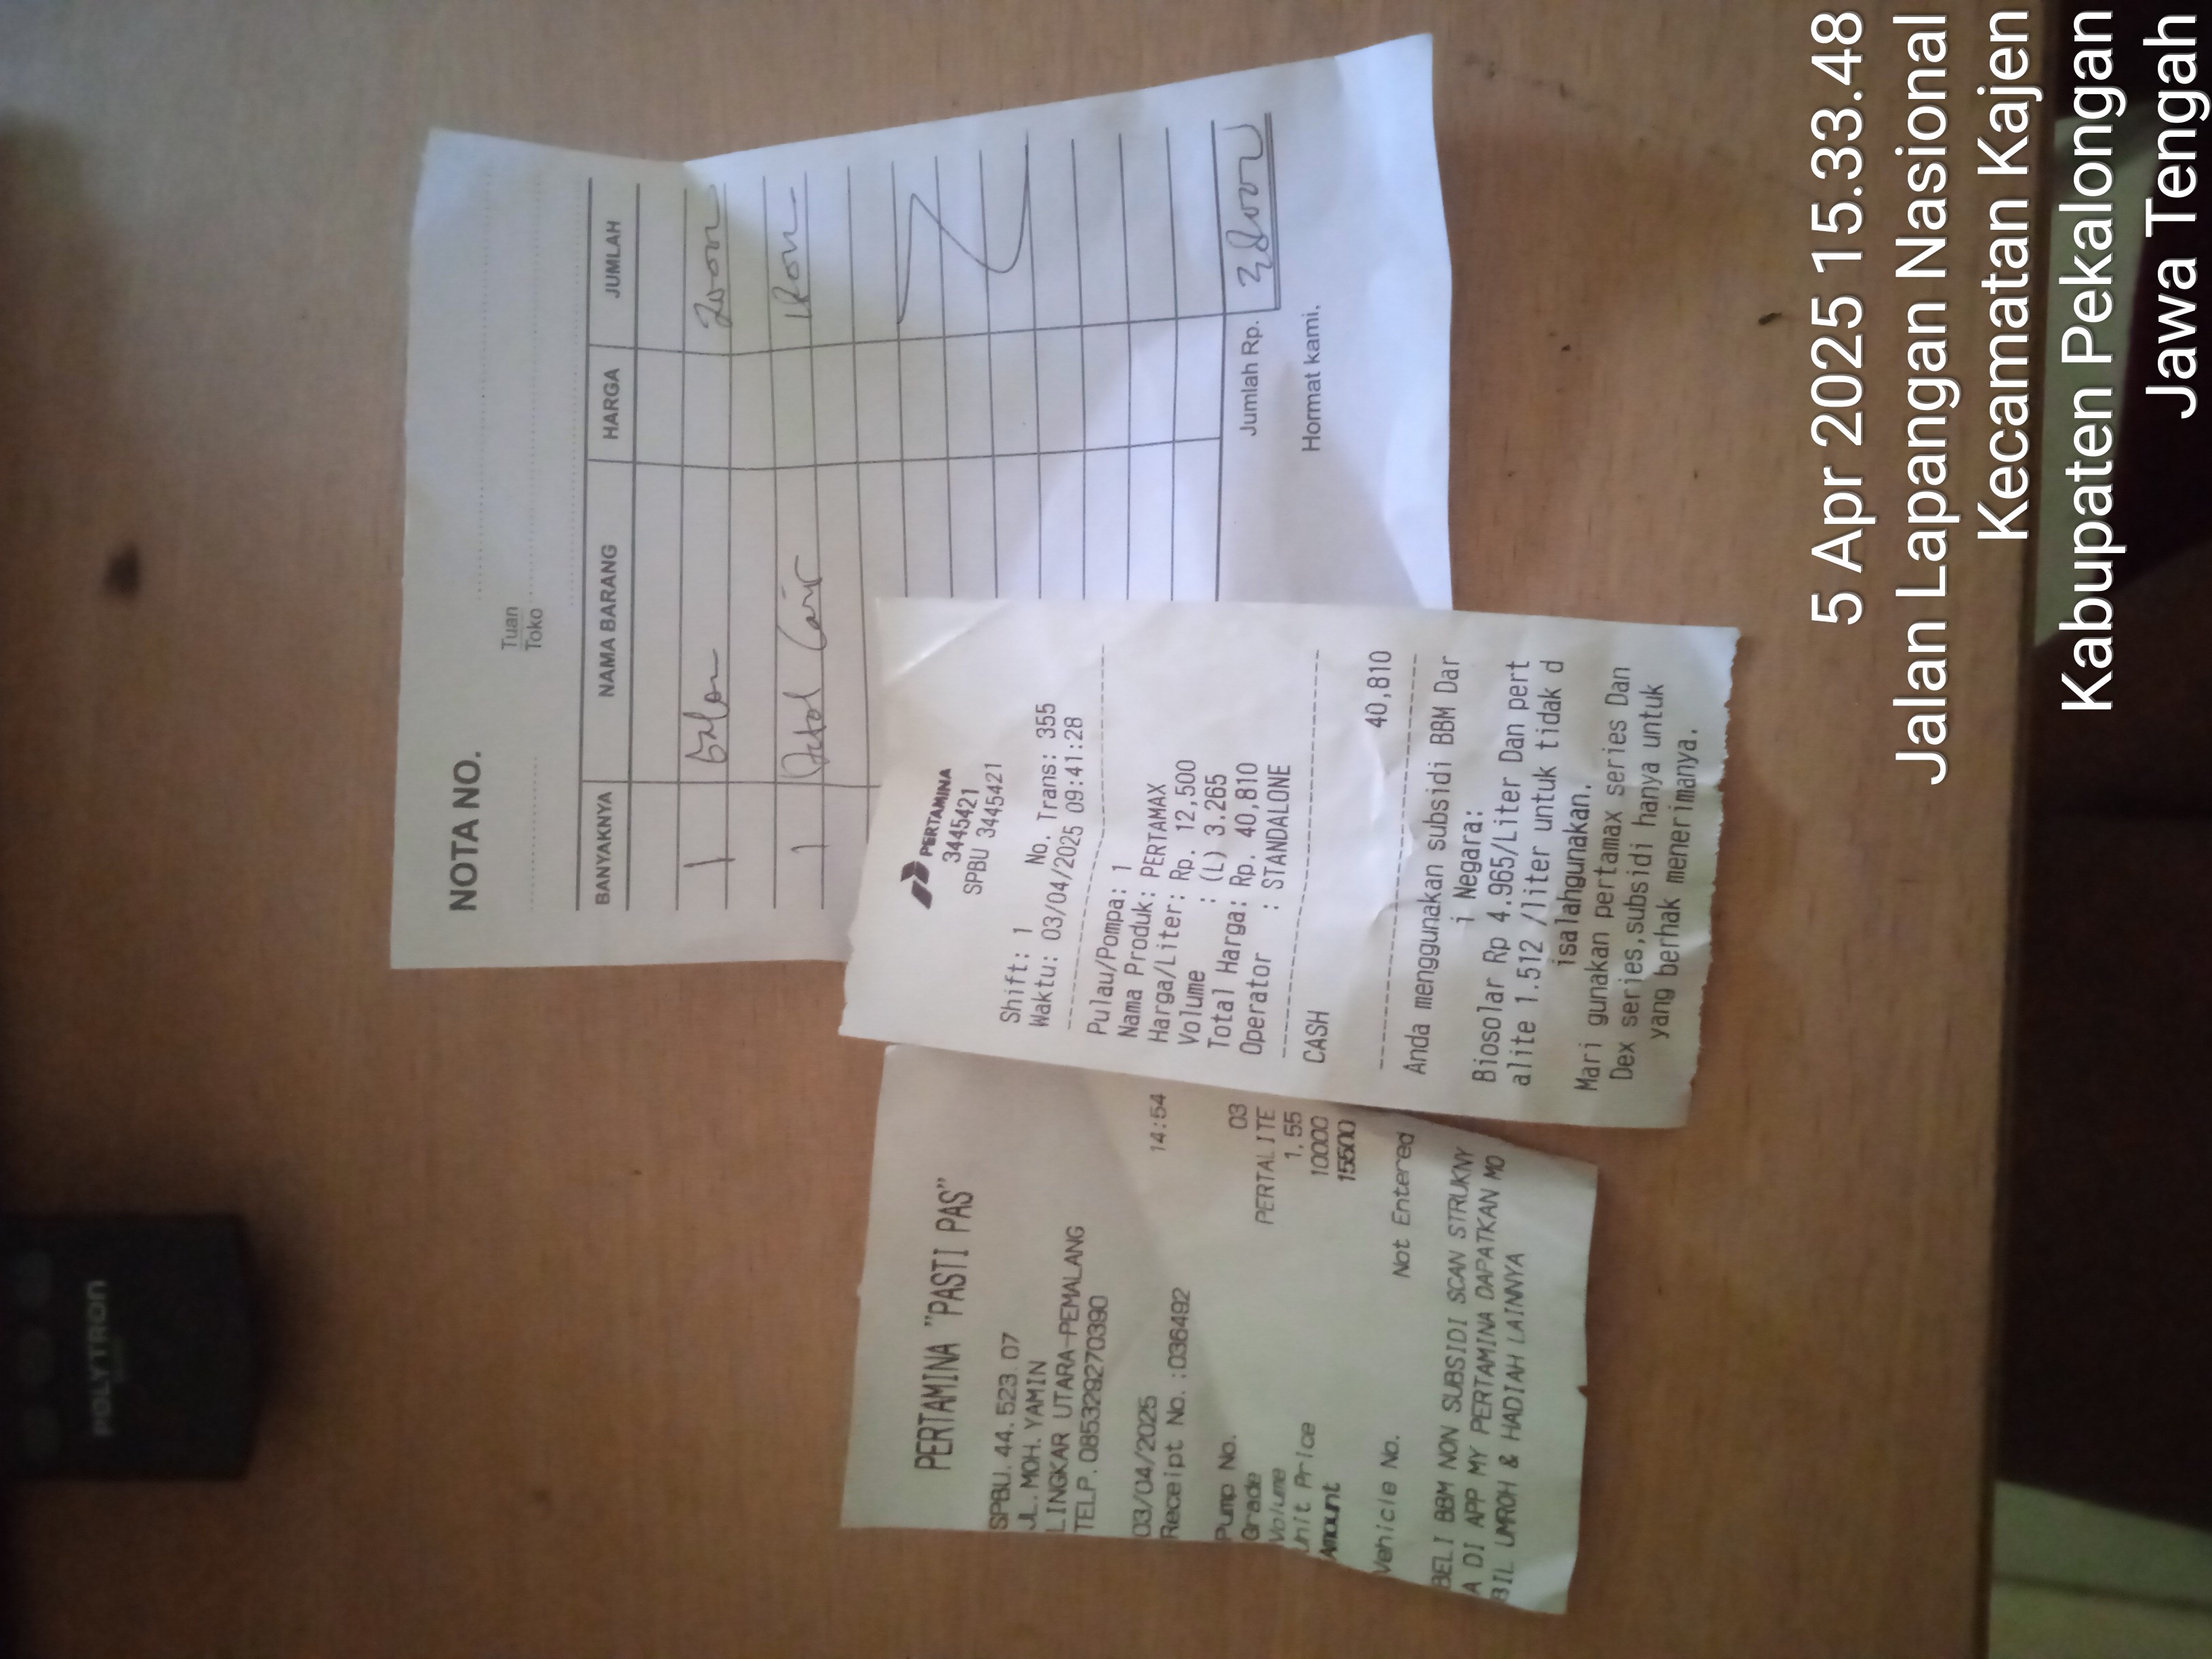 POLYTRON
NOTA NO.
Tuan
Toko
BANYAKNYA NAMA BARANG HARGA JUMLAH
1 Galon 20000
1 Detol Cair 18000
Jumlah Rp. 38000
Hormat kami,
PERTAMINA "PASTI PAS"
SPBU. 44.523.07
JL.MOH. YAMIN
LINGKAR UTARA-PEMALANG
TELP.085329270390
03/04/2025 14:54
Receipt No.:036492
Pump No. 03
Grade PERTALITE
Volume 1.55
Unit Price 10000
Amount 15500
Vehicle No. Not Entered
BELI BBM NON SUBSIDI SCAN STRUKNY
A DI APP MY PERTAMINA DAPATKAN MO
BIL UMROH & HADIAH LAINNYA
PERTAMINA
3445421
SPBU 3445421
Shift: 1 No. Trans: 355
Waktu: 03/04/2025 09:41:28
Pulau/Pompa: 1
Nama Produk: PERTAMAX
Harga/Liter: Rp. 12,500
Volume : (L) 3.265
Total Harga: Rp. 40,810
Operator : STANDALONE
CASH
40,810
Anda menggunakan subsidi BBM Dar
i Negara:
Biosolar Rp 4.965/Liter Dan pert
alite 1.512 /liter untuk tidak d
isalahgunakan.
Mari gunakan pertamax series Dan
Dex series,subsidi hanya untuk
yang berhak menerimanya.
5 Apr 2025 15.33.48
Jalan Lapangan Nasional
Kecamatan Kajen
Kabupaten Pekalongan
Jawa Tengah